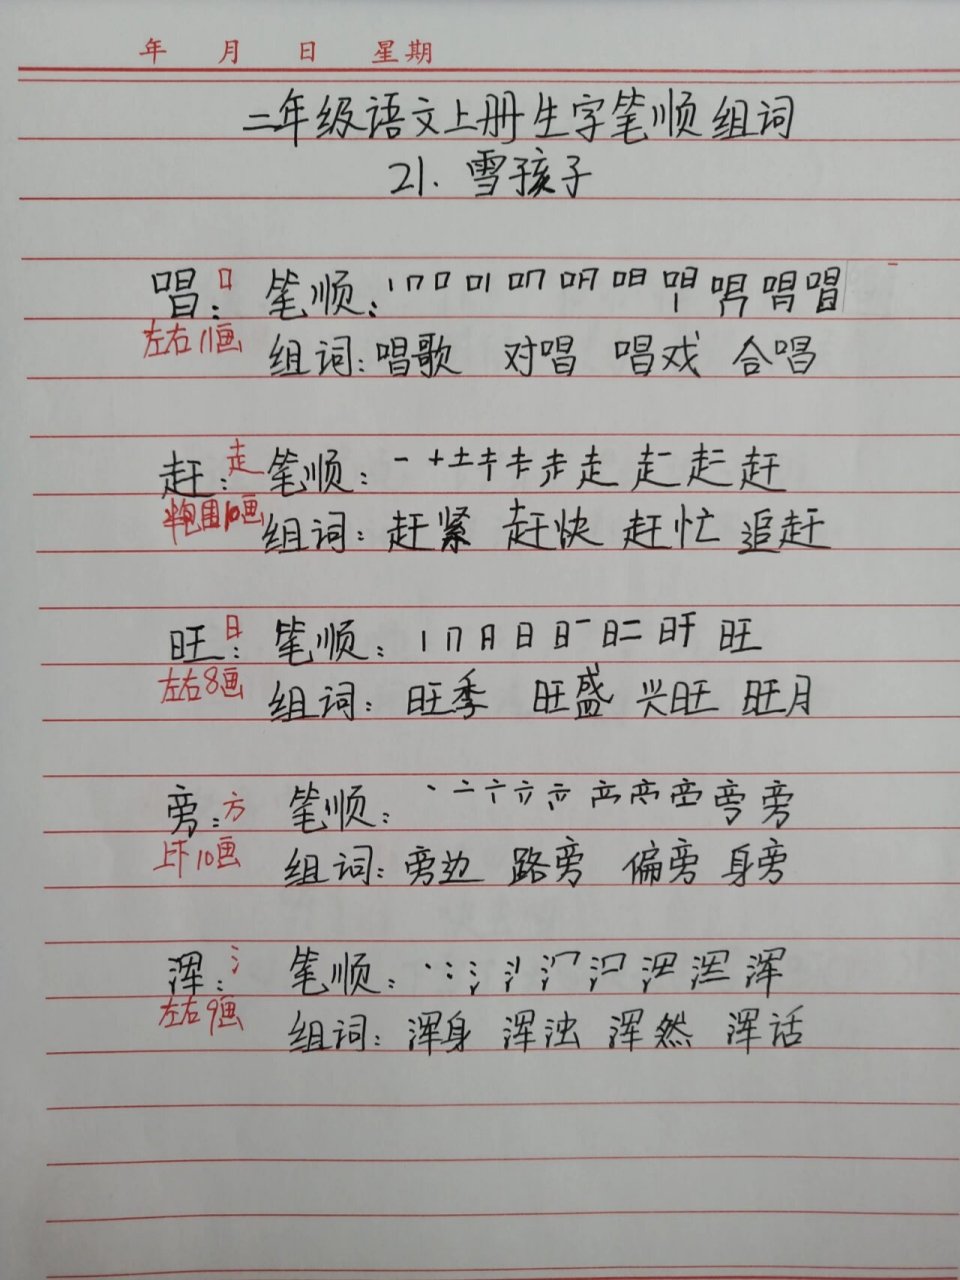 年 月 日 星期
二年级语文上册生字笔顺组词
21. 雪孩子
唱: 口 笔顺: 丨 冂 口 口丨 口冂 口月 口日 唱
左右11画 组词: 唱歌 对唱 唱戏 合唱
赶: 走 笔顺: 一 十 土 キ 走 赶
半包围10画 组词: 赶紧 赶快 赶忙 追赶
旺: 日 笔顺: 丨 冂 月 日 日一 日二 旰 旺
左右8画 组词: 旺季 旺盛 兴旺 旺月
旁: 方 笔顺: 丶 亠 六 立 旁 旁
上下10画 组词: 旁边 路旁 偏旁 身旁
浑: 氵 笔顺: 丶 冫 氵 浑
左右9画 组词: 浑身 浑浊 浑然 浑话